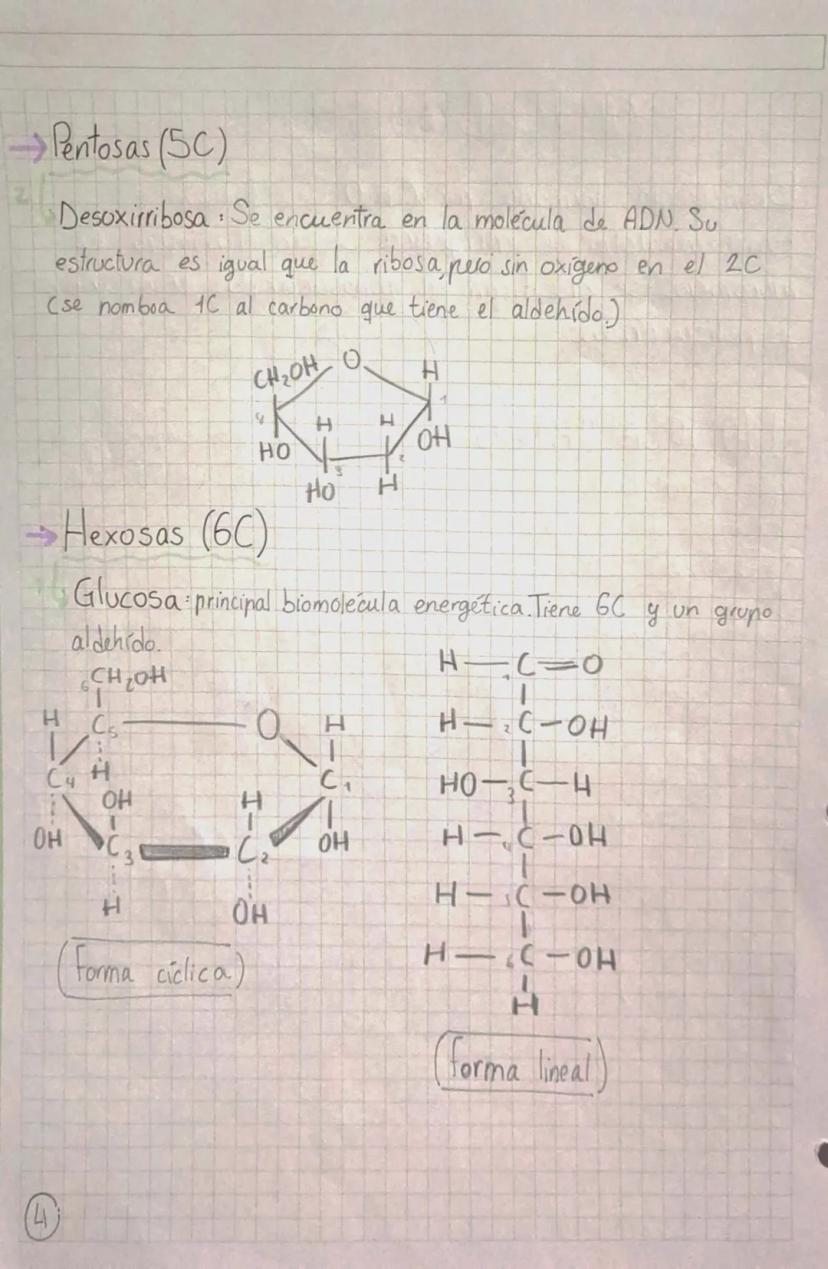 → Pentosas (5C)
Desoxirribosa: Se encuentra en la molécula de ADN. Su
estructura es igual que la ribosa, pero sin oxígeno en el 2C
(se nombra 1C al carbono que tiene el aldehído.)
CH₂OH O H
4 H H 1
HO 3 2 OH
HO H
→ Hexosas (6C)
Glucosa: principal biomolécula energética. Tiene 6C y un grupo
aldehído.
6 CH₂OH
H C₅ O H
C₄ H C₁
OH H
OH C₃ C₂ OH
H OH
(forma cíclica)
H — 1C = O
H — 2C — OH
HO — 3C — H
H — 4C — OH
H — 5C — OH
H — 6C — OH
H
(forma lineal)
4